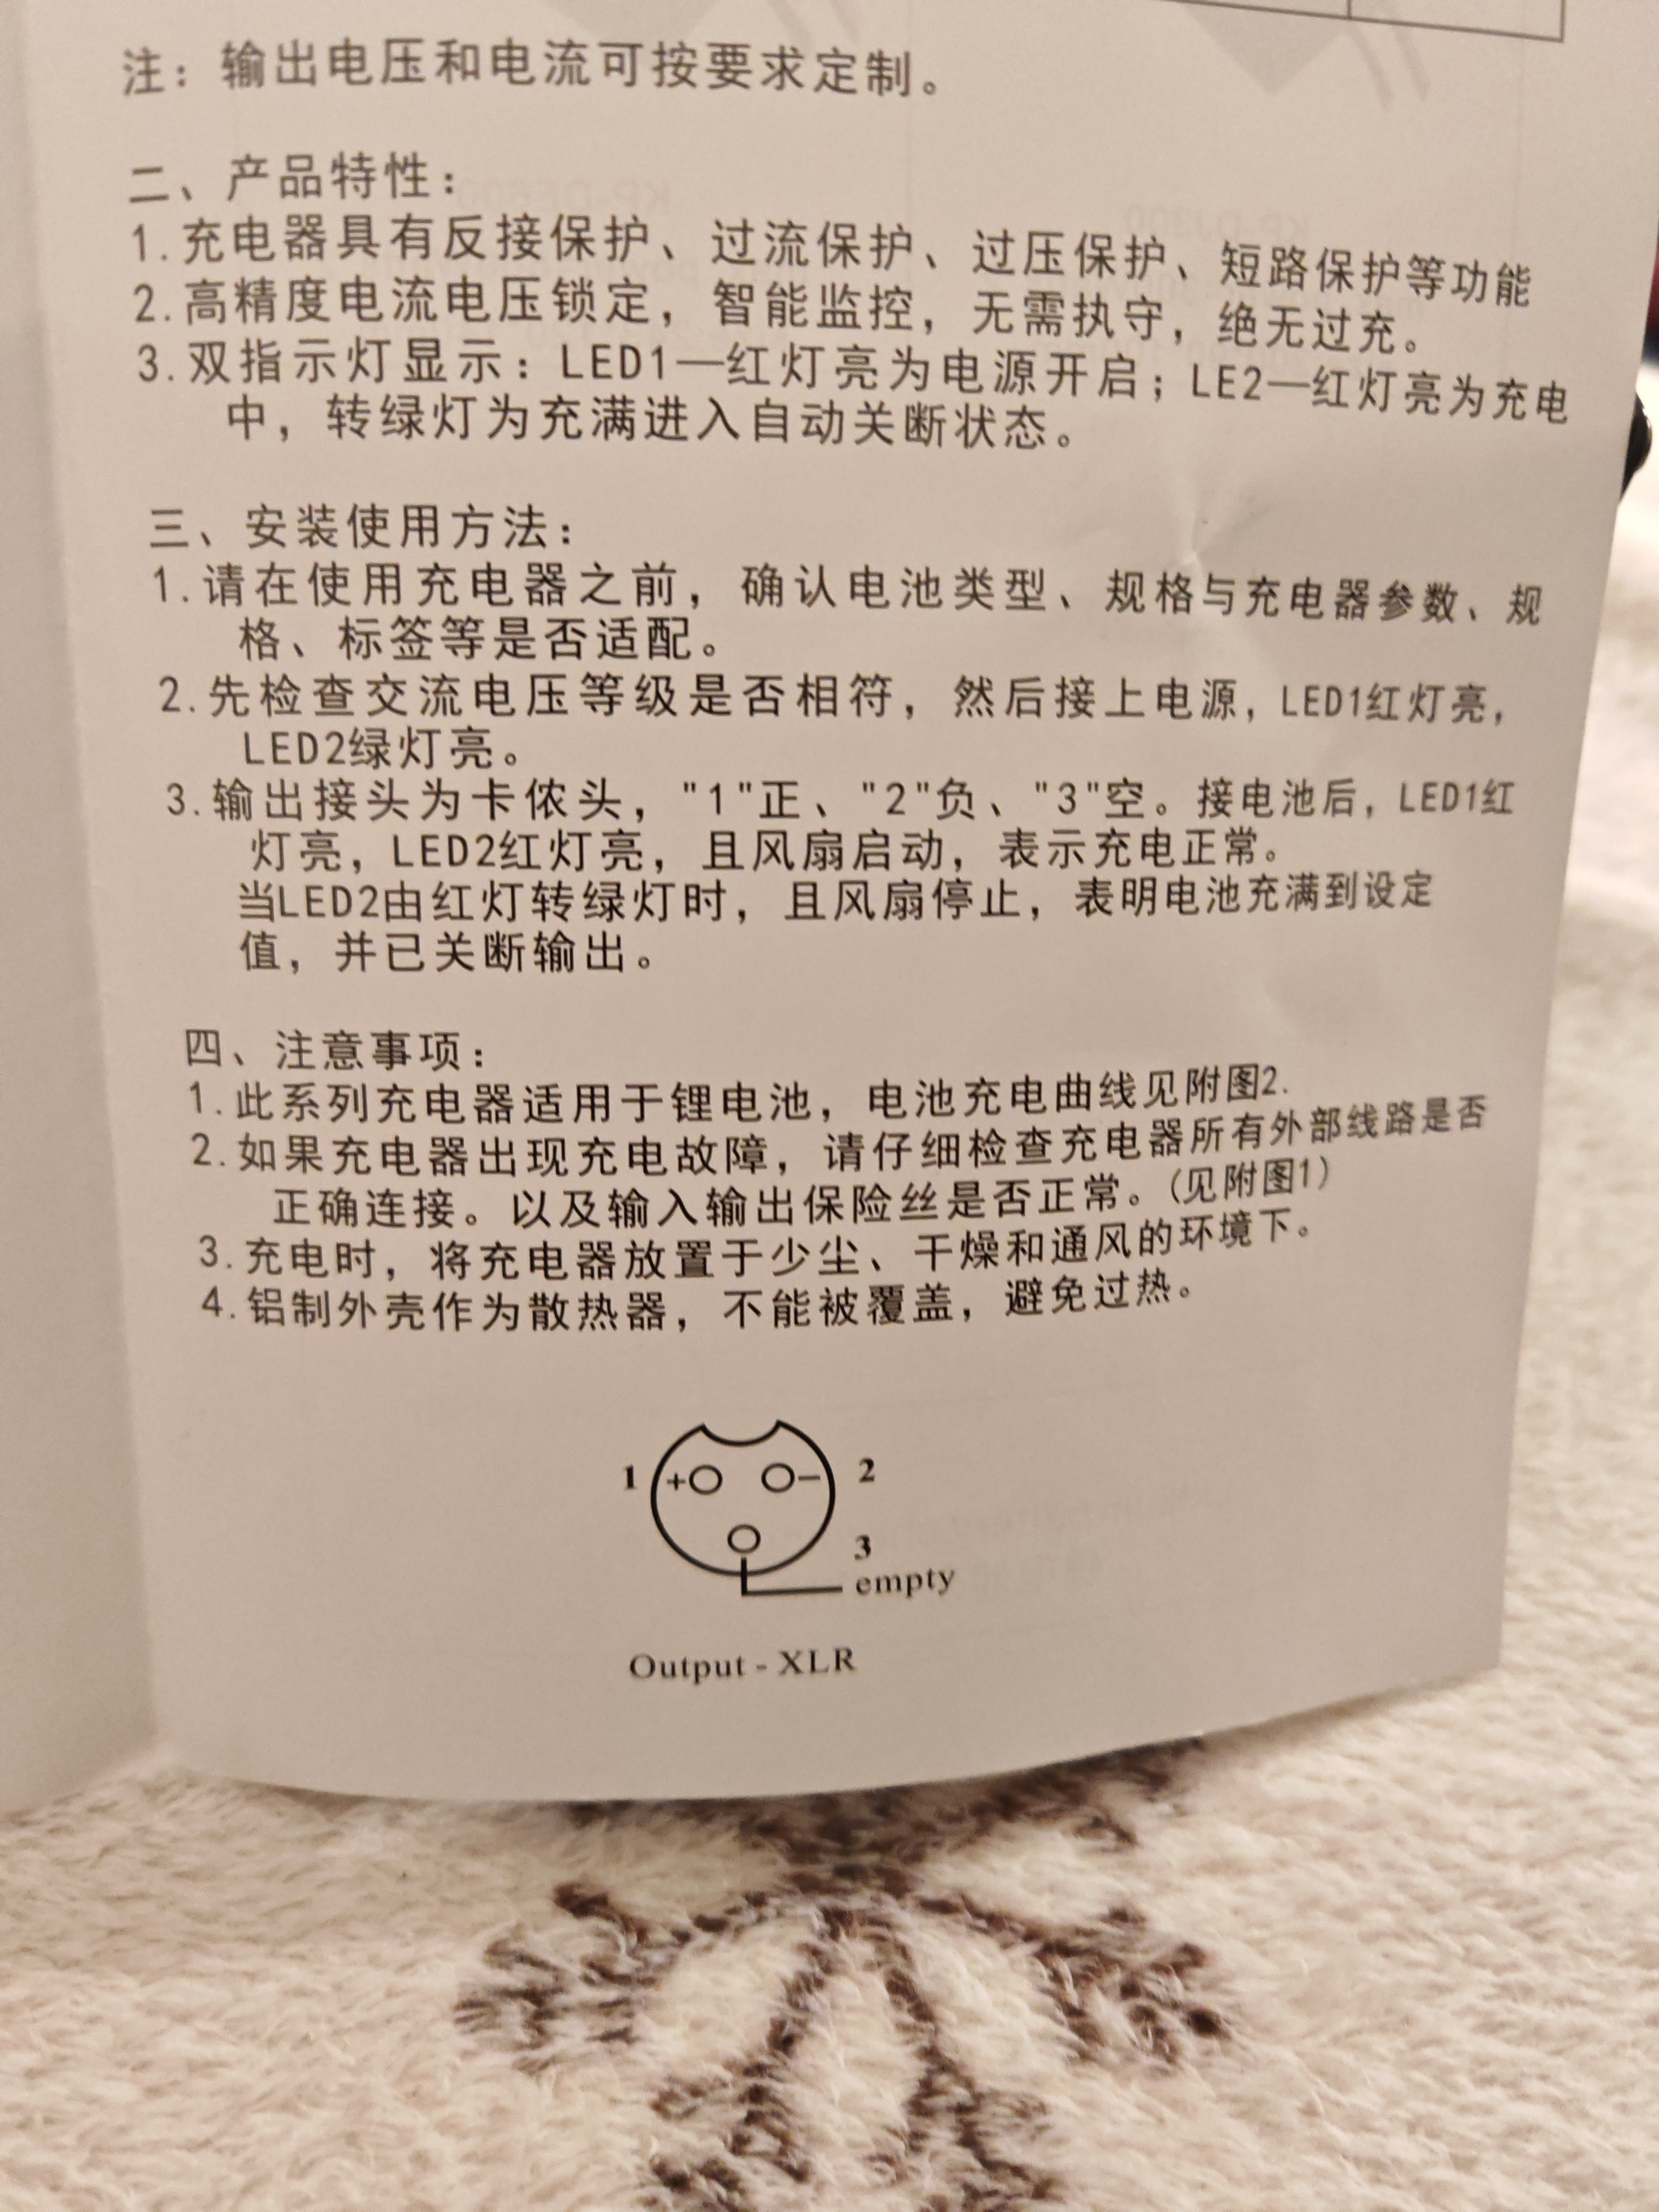 注：输出电压和电流可按要求定制。
二、产品特性：
1.充电器具有反接保护、过流保护、过压保护、短路保护等功能
2.高精度电流电压锁定，智能监控，无需执守，绝无过充。
3.双指示灯显示：LED1—红灯亮为电源开启；LE2—红灯亮为充电
中，转绿灯为充满进入自动关断状态。
三、安装使用方法：
1.请在使用充电器之前，确认电池类型、规格与充电器参数、规
格、标签等是否适配。
2.先检查交流电压等级是否相符，然后接上电源，LED1红灯亮，
LED2绿灯亮。
3.输出接头为卡侬头，"1"正、"2"负、"3"空。接电池后，LED1红
灯亮，LED2红灯亮，且风扇启动，表示充电正常。
当LED2由红灯转绿灯时，且风扇停止，表明电池充满到设定
值，并已关断输出。
四、注意事项：
1.此系列充电器适用于锂电池，电池充电曲线见附图2.
2.如果充电器出现充电故障，请仔细检查充电器所有外部线路是否
正确连接。以及输入输出保险丝是否正常。(见附图1)
3.充电时，将充电器放置于少尘、干燥和通风的环境下。
4.铝制外壳作为散热器，不能被覆盖，避免过热。
1 + − 2
3
empty
Output - XLR